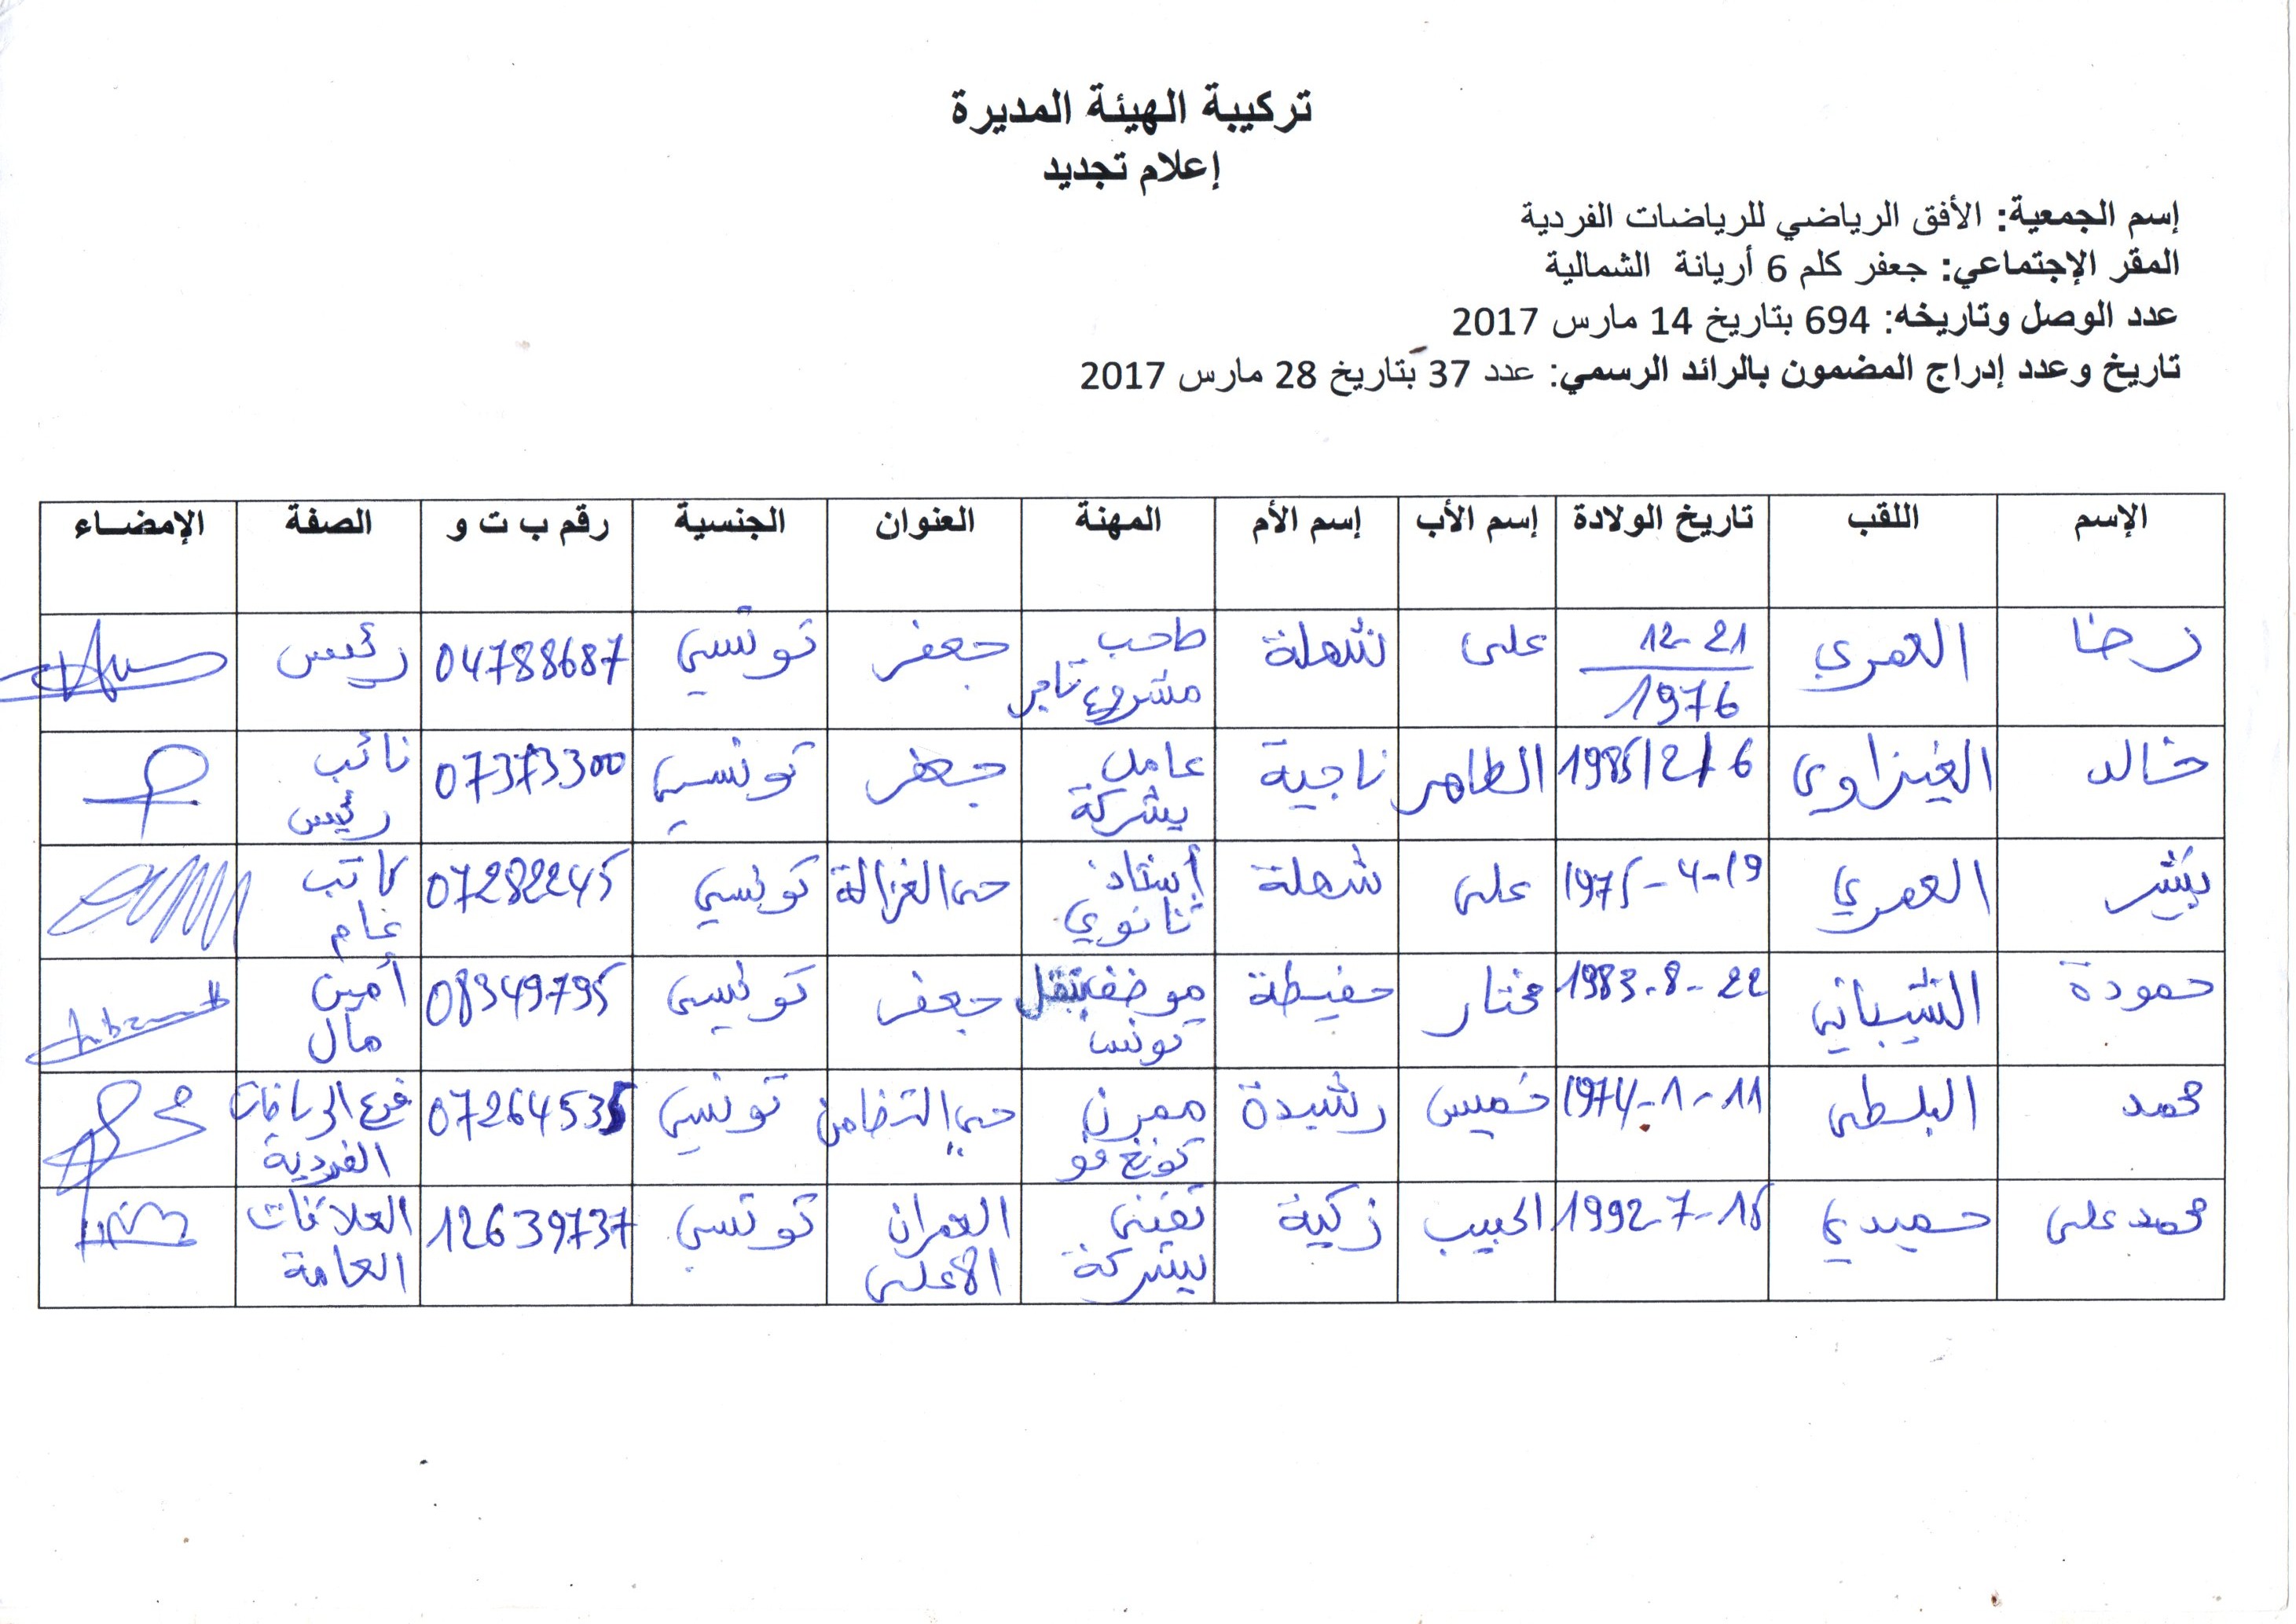 تركيبة الهيئة المديرة
إعلام تجديد
إسم الجمعية: الأفق الرياضي للرياضات الفردية
المقر الإجتماعي: جعفر كلم 6 أريانة الشمالية
عدد الوصل وتاريخه: 694 بتاريخ 14 مارس 2017
تاريخ وعدد إدراج المضمون بالرائد الرسمي: عدد 37 بتاريخ 28 مارس 2017
الإسم اللقب تاريخ الولادة إسم الأب إسم الأم المهنة العنوان الجنسية رقم ب ت و الصفة الإمضاء
رضا العمري 21-12 1976 علي شهلة صاحب مشروع تاجر جعفر تونسي 04788687 رئيس
خالد الغيزاوي 6/2/1985 الطاهر ناجية عامل بشركة جعفر تونسي 07373300 نائب رئيس
بشير العمري 19-4-1975 علي شهلة أستاذ ثانوي حي الغزالة تونسي 07282245 كاتب عام
حمودة الشيباني 22-8-1983 مختار حفيظة موظف بنقل تونس جعفر تونسي 08349795 أمين مال
محمد البلطي 11-1-1974 خميس رشيدة ممرن كونغ فو حي التضامن تونسي 07264535 فرع الرياضات الفردية
محمد علي حميدي 15-7-1992 الحبيب زكية تقني بشركة العمران الأعلى تونسي 12639737 العلاقات العامة